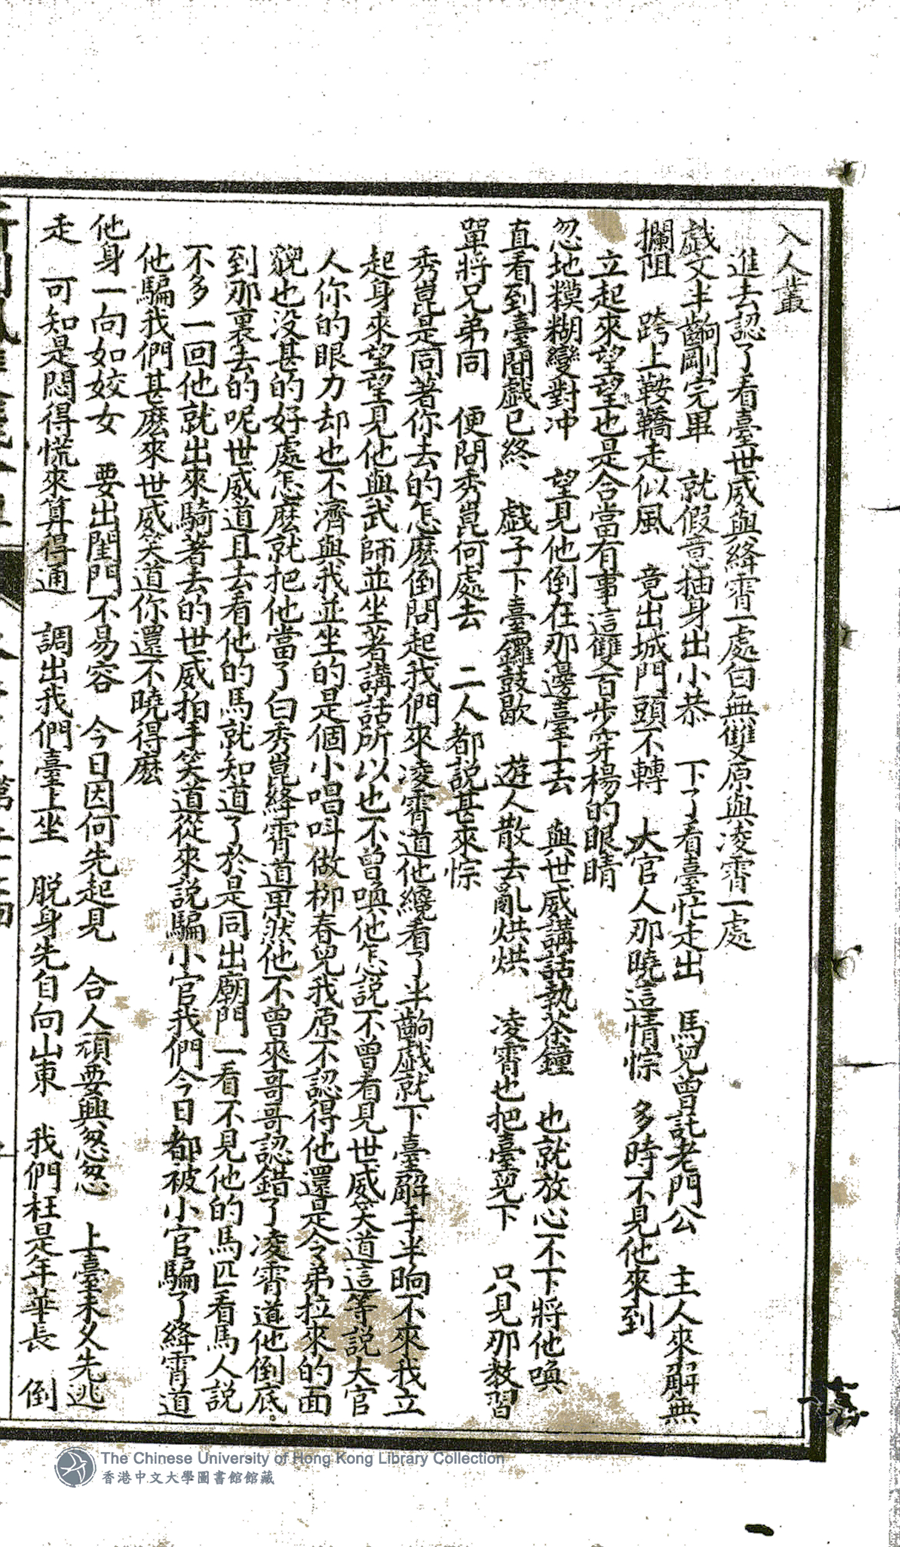 入人叢
進去認了看臺世威與絳霄一處白無雙原與凌霄一處
戲文半齣剛完畢 就假意抽身出小恭 下了看臺忙走出 馬兒曾託老門公 主人來嗣無
攔阻 跨上鞍轎走似風 竟出城門頭不轉 大官人那曉這情悰 多時不見他來到
立起來望望也是合當有事這雙百步穿楊的眼睛
忽地糢糊變對冲 望見他倒在那邊臺上去 與世威講話執茶鐘 也就放心不下將他喚
直看到臺間戲已終 戲子下臺鑼鼓歇 遊人散去亂烘烘 凌霄也把臺兒下 只見那教習
單將兄弟同 便問秀崑何處去 二人都說甚來悰
秀崑是同著你去的怎麽倒問起我們來凌霄道他纔看了半齣戲就下臺解手半晌不來我立
起身來望望見他與武師並坐著講話所以也不曾喚他怎說不曾看見世威笑道這等說大官
人你的眼力却也不濟與我並坐的是個小唱呌做栁春兒我原不認得他還是令弟拉來的面
貌也没甚的好處怎麽就把他當了白秀崑絳霄道果然他不曾來哥哥認錯了凌霄道他倒底
到那裏去的呢世威道且去看他的馬就知道了於是同出廟門一看不見他的馬匹看馬人說
不多一回他就出來騎著去的世威拍手笑道從來說騙小官我們今日都被小官騙了絳霄道
他騙我們甚麽來世威笑道你還不曉得麽
他身一向如姣女 要出閨門不易容 今日因何先起見 合人頑耍興怱怱 上臺未久先逃
走 可知是悶得慌來算得通 調出我們臺上坐 脱身先自向山東 我們枉是年華長 倒
The Chinese University of Hong Kong Library Collection
香港中文大學圖書館館藏